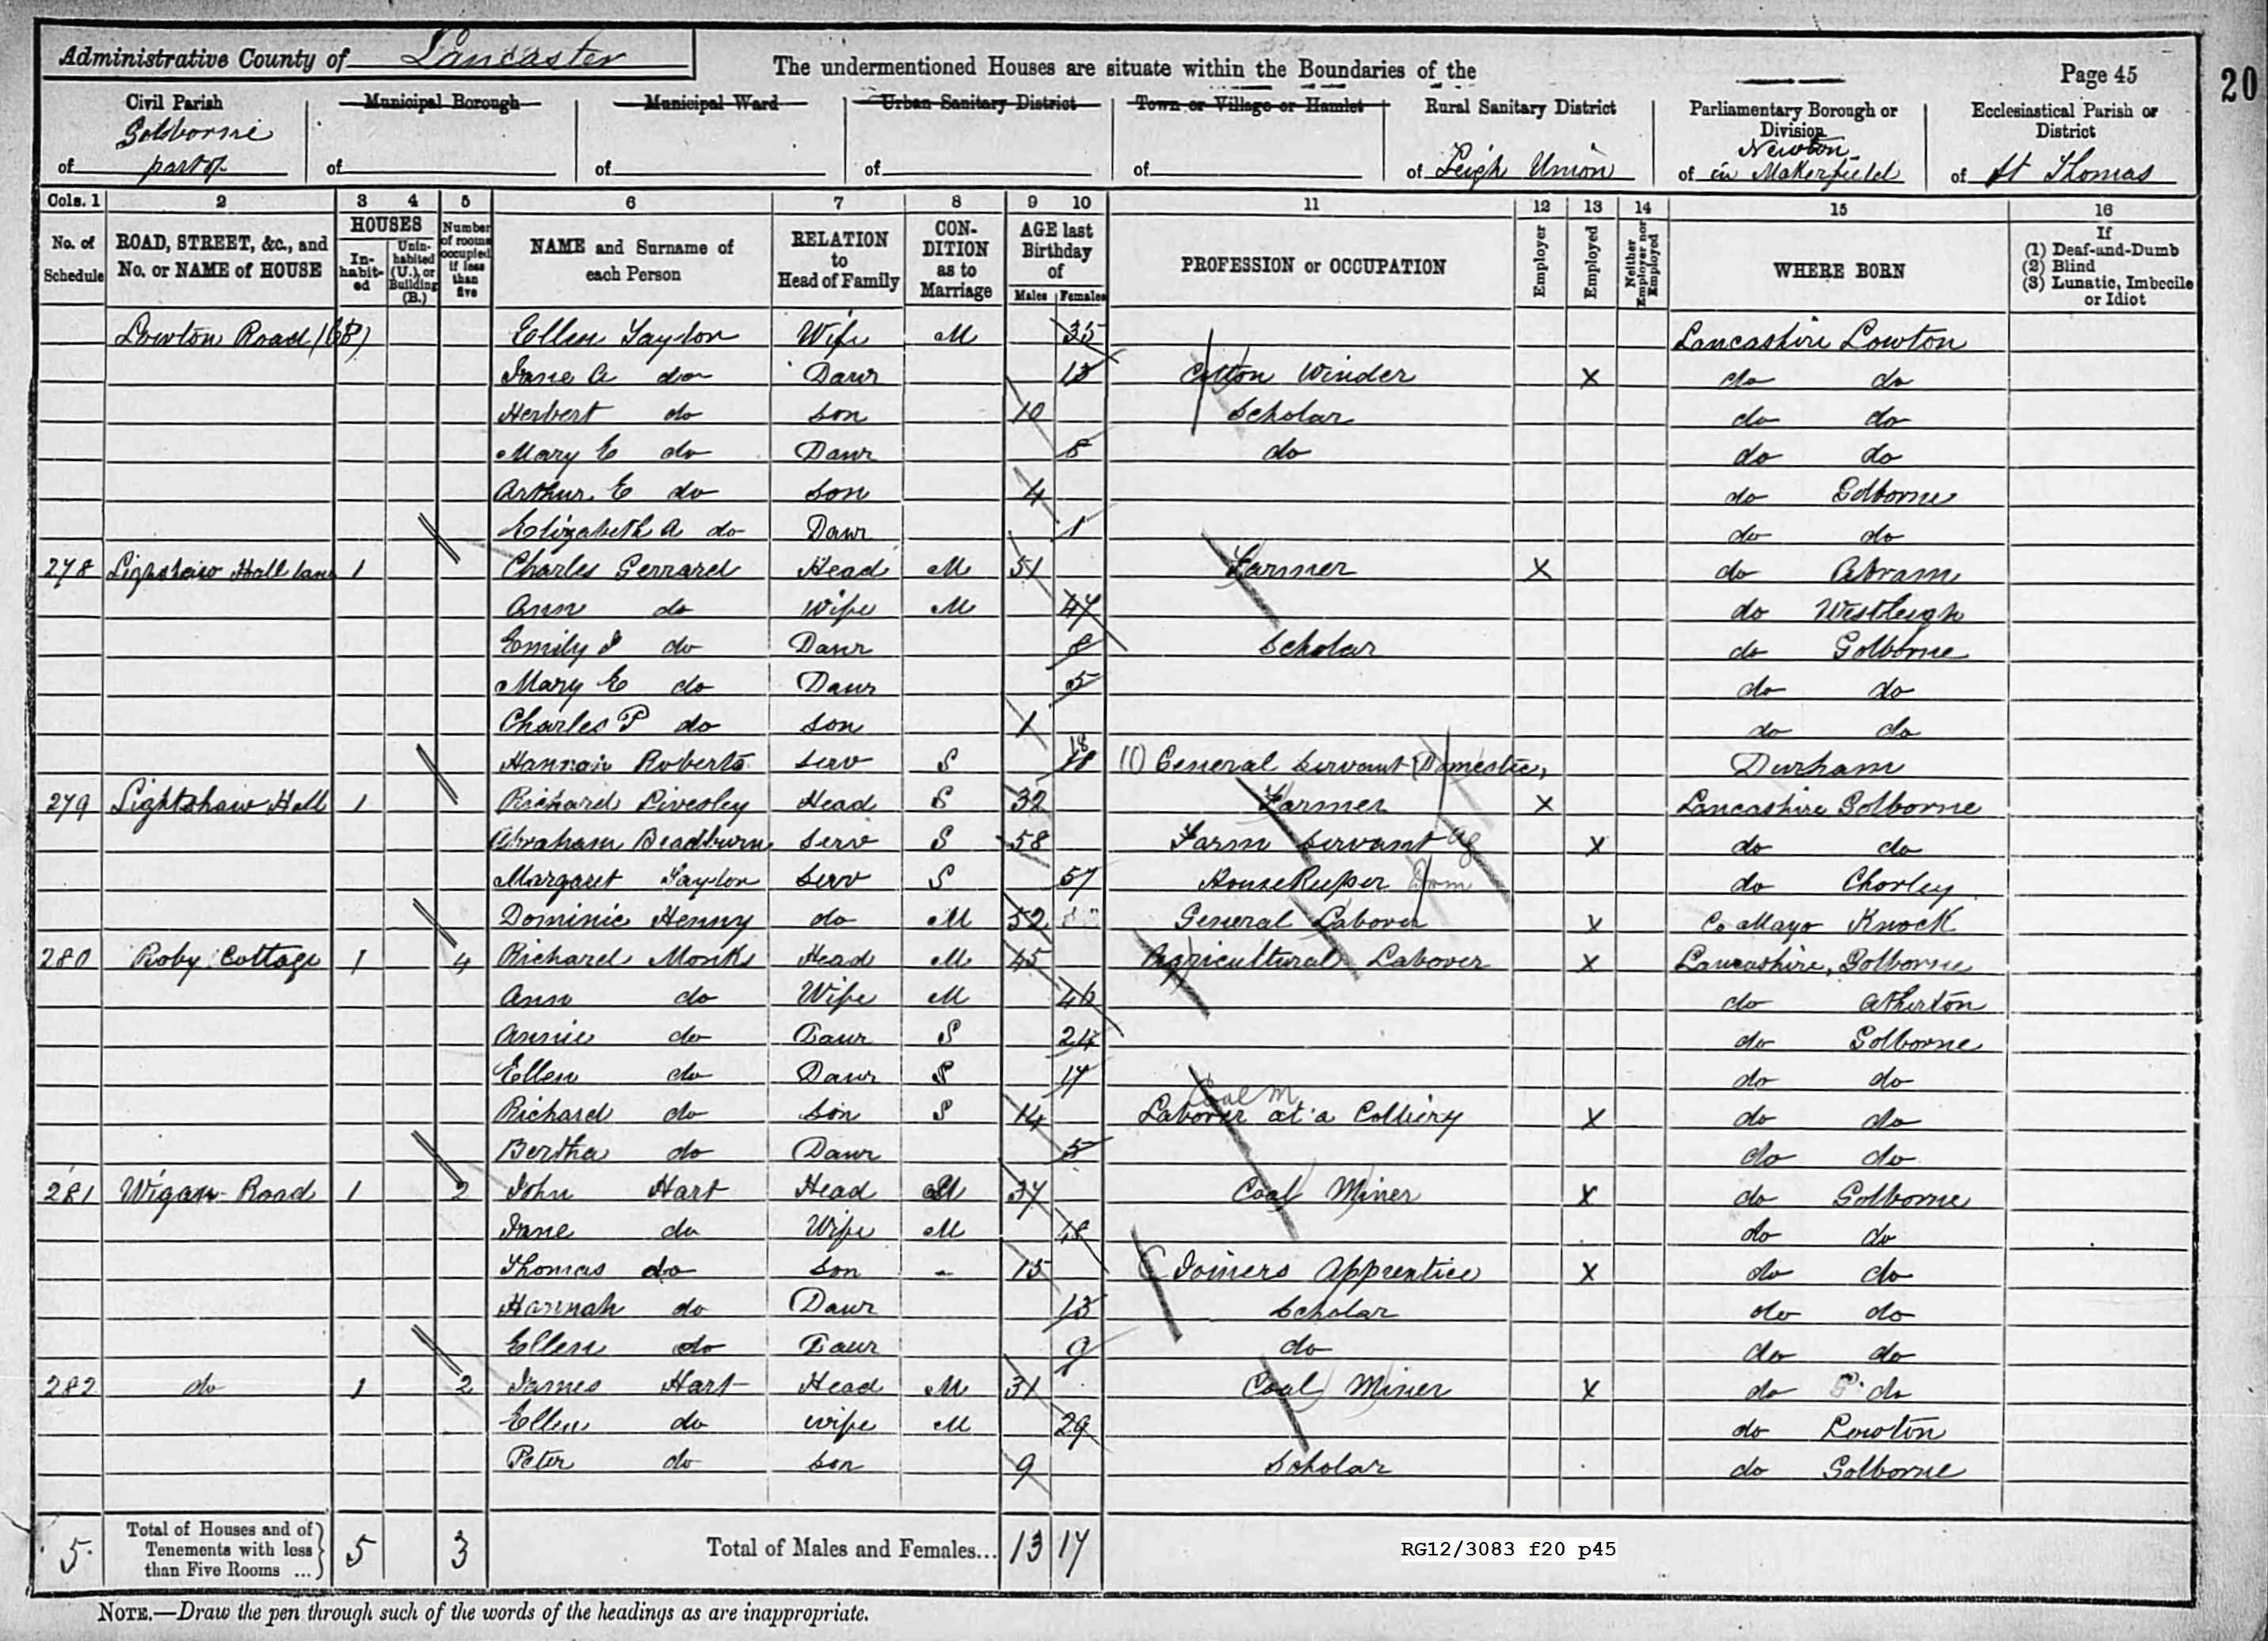 Administrative County of Lancaster
The undermentioned Houses are situate within the Boundaries of the
Page 45
20
Civil Parish Municipal Borough Municipal Ward Urban Sanitary District Town or Village or Hamlet Rural Sanitary District Parliamentary Borough or Division Ecclesiastical Parish or District
of Golborne part of
of
of
of
of
of Leigh Union
of Newton in Makerfield
of St Thomas
Cols. 1 2 3 4 5 6 7 8 9 10 11 12 13 14 15 16
No. of Schedule
ROAD, STREET, &c., and No. or NAME of HOUSE
HOUSES
In-habit-ed
Unin-habited (U.), or Building (B.)
Number of rooms occupied if less than five
NAME and Surname of each Person
RELATION to Head of Family
CON-DITION as to Marriage
AGE last Birthday of
Males Females
PROFESSION or OCCUPATION
Employer
Employed
Neither Employer nor Employed
WHERE BORN
If
(1) Deaf-and-Dumb
(2) Blind
(3) Lunatic, Imbecile or Idiot
Lowton Road Ellen Taylor Wife M 35 Lancashire Lowton
Jane A do Daur 13 Cotton Winder X do do
Herbert do Son 10 Scholar do do
Mary E do Daur 8 do do do
Arthur E do Son 4 do Golborne
Elizabeth A do Daur 1 do do
278 Lightshaw Hall lane 1 Charles Gerrard Head M 51 Farmer X do Abram
Ann do Wife M 47 do Westleigh
Emily J do Daur 8 Scholar do Golborne
Mary E do Daur 5 do do
Charles P do Son 1 do do
Hannah Roberts Serv S 18 General Servant (Domestic) Durham
279 Lightshaw Hall 1 Richard Livesley Head S 32 Farmer X Lancashire Golborne
Abraham Bradburn Serv S 58 Farm Servant Ag X do do
Margaret Taylor Serv S 57 House Keeper Dom do Chorley
Dominic Henny do M 52 General Labourer X Co Mayo Knock
280 Roby Cottage 1 4 Richard Monks Head M 45 Agricultural Labourer X Lancashire, Golborne
Ann do Wife M 46 do Atherton
Annie do Daur S 24 do Golborne
Ellen do Daur S 17 do do
Coal M
Richard do Son S 14 Laborer at a Colliery X do do
Bertha do Daur 5 do do
281 Wigan Road 1 2 John Hart Head M 37 Coal Miner X do Golborne
Jane do Wife M do do
Thomas do Son - 15 Joiners Apprentice X do do
Hannah do Daur 13 Scholar do do
Ellen do Daur 9 do do do
282 do 1 2 James Hart Head M 31 Coal Miner X do do
Ellen do Wife M 29 do Lowton
Peter do Son 9 Scholar do Golborne
5 Total of Houses and of Tenements with less than Five Rooms ... 5 3 Total of Males and Females... 13 17
RG12/3083 f20 p45
NOTE.—Draw the pen through such of the words of the headings as are inappropriate.